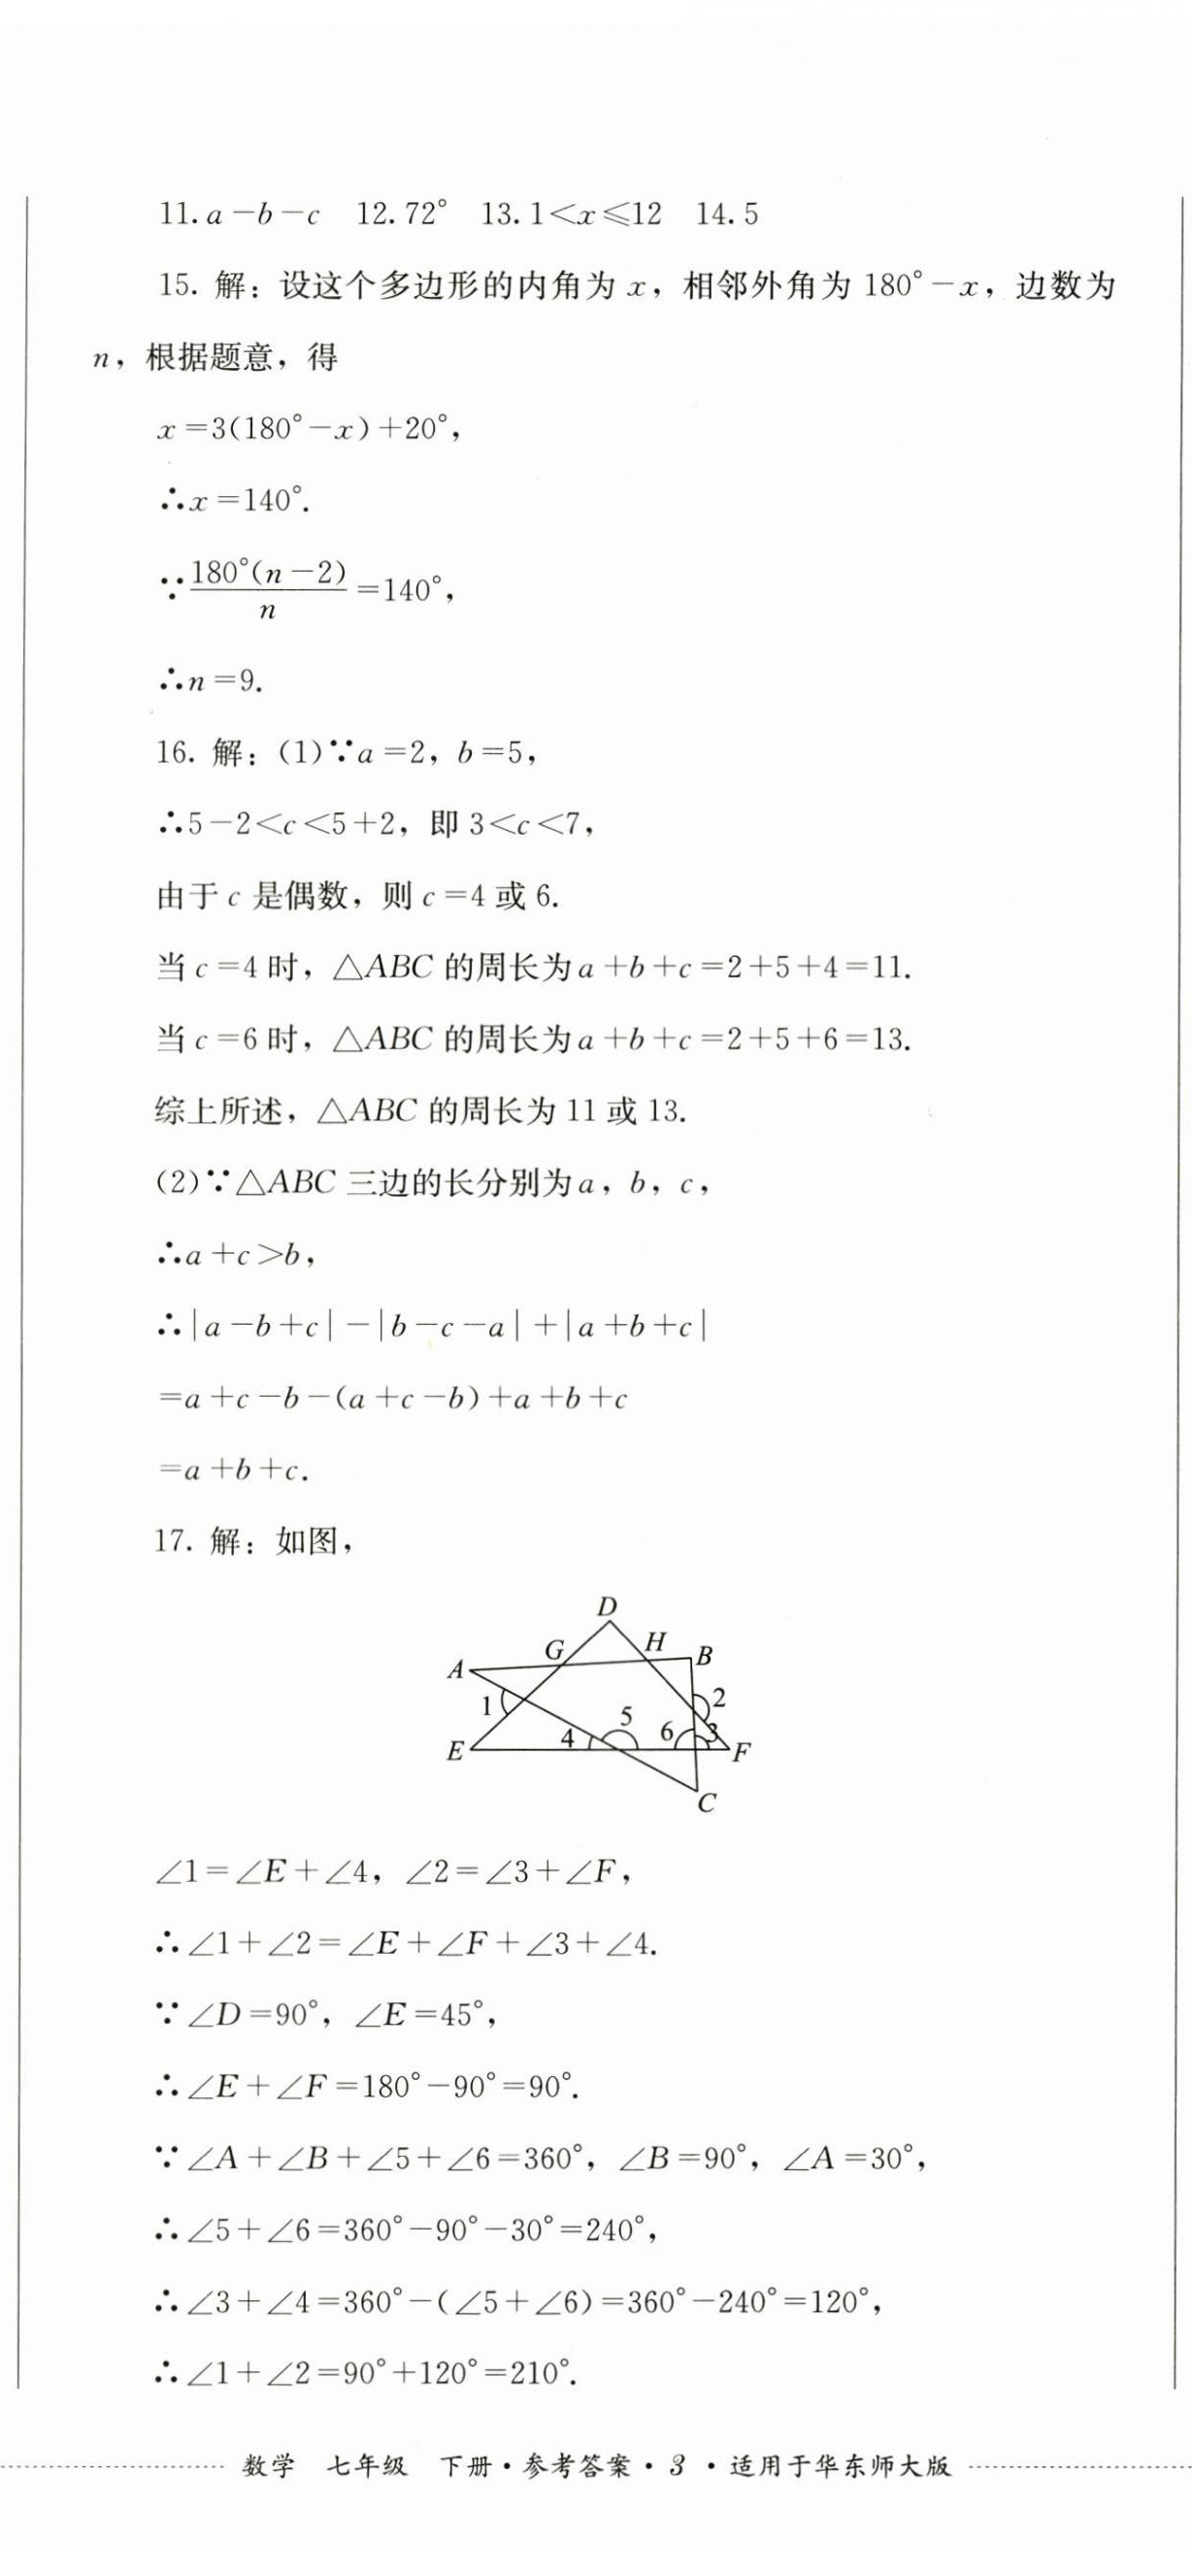 11. a－b－c　12. 72°　13. 1<x≤12　14. 5
15. 解：设这个多边形的内角为 x，相邻外角为 180°－x，边数为
n，根据题意，得
x＝3(180°－x)＋20°，
∴x＝140°.
∵180°(n－2)/n＝140°，
∴n＝9.
16. 解：(1)∵a＝2，b＝5，
∴5－2<c<5＋2，即 3<c<7，
由于 c 是偶数，则 c＝4 或 6.
当 c＝4 时，△ABC 的周长为 a＋b＋c＝2＋5＋4＝11.
当 c＝6 时，△ABC 的周长为 a＋b＋c＝2＋5＋6＝13.
综上所述，△ABC 的周长为 11 或 13.
(2)∵△ABC 三边的长分别为 a，b，c，
∴a＋c>b，
∴|a－b＋c|－|b－c－a|＋|a＋b＋c|
＝a＋c－b－(a＋c－b)＋a＋b＋c
＝a＋b＋c.
17. 解：如图，
D
G H B
A
1 2
5
4 6 3
E F
C
∠1＝∠E＋∠4，∠2＝∠3＋∠F，
∴∠1＋∠2＝∠E＋∠F＋∠3＋∠4.
∵∠D＝90°，∠E＝45°，
∴∠E＋∠F＝180°－90°＝90°.
∵∠A＋∠B＋∠5＋∠6＝360°，∠B＝90°，∠A＝30°，
∴∠5＋∠6＝360°－90°－30°＝240°，
∴∠3＋∠4＝360°－(∠5＋∠6)＝360°－240°＝120°，
∴∠1＋∠2＝90°＋120°＝210°.
数学　七年级　下册·参考答案·3·适用于华东师大版